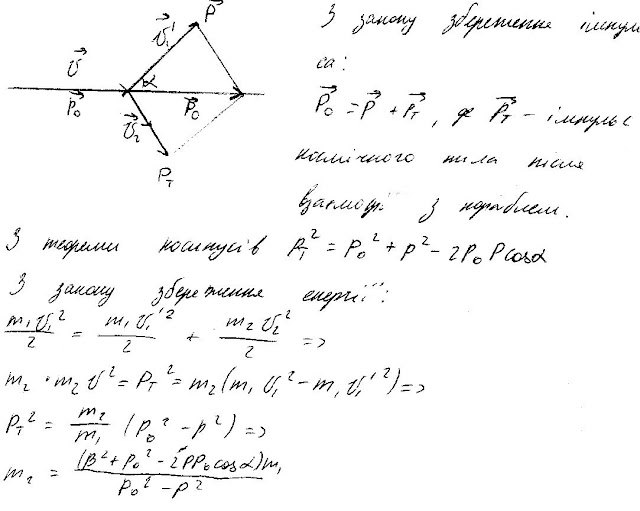 P⃗
υ⃗₁'
З закону збереження імпуль
υ⃗
α
са:
P⃗₀
P⃗₀
P⃗₀ = P⃗ + P⃗_T, де P⃗_T – імпульс
υ⃗₂
P_T
космічного тіла після
взаємодії з кораблем.
З теореми косинусів P_T² = P₀² + P² – 2P₀Pcosα
З закону збереження енергії:
m₁υ₁²/2 = m₁υ₁'²/2 + m₂υ₂²/2 =>
m₂ · m₂υ² = P_T² = m₂(m₁υ₁² – m₁υ₁'²) =>
P_T² = m₂/m₁ (P₀² – P²) =>
m₂ = (P² + P₀² – 2PP₀cosα)m₁ / P₀² – P²